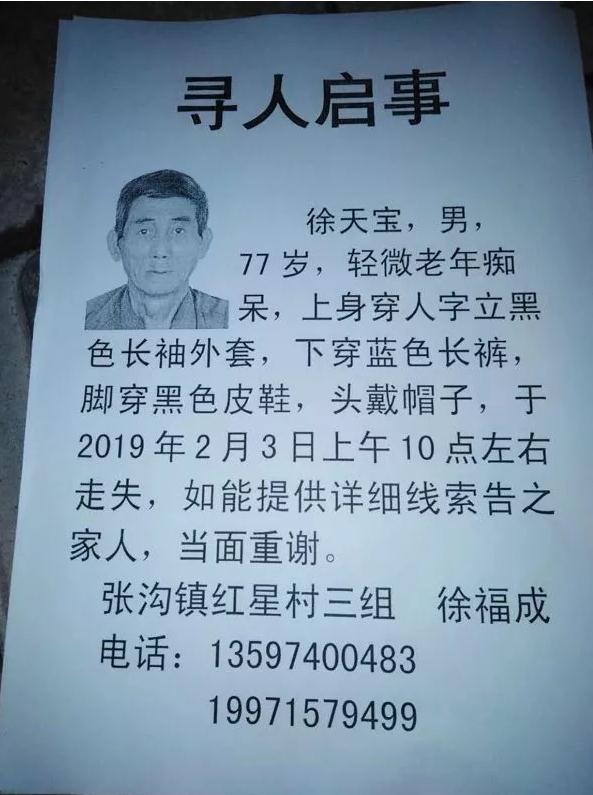 寻人启事
徐天宝，男，
77岁，轻微老年痴
呆，上身穿人字立黑
色长袖外套，下穿蓝色长裤，
脚穿黑色皮鞋，头戴帽子，于
2019年2月3日上午10点左右
走失，如能提供详细线索告之
家人，当面重谢。
张沟镇红星村三组 徐福成
电话：13597400483
19971579499